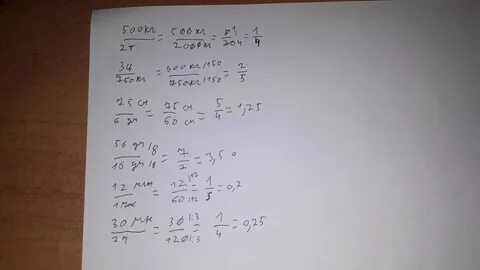 500кг/2т = 500кг/2000кг = 1/4
3ц/750кг = 300кг/150 / 750кг/150 = 2/5
75 см/6 дм = 75 см/60 см = 5/4 = 1,25
56 дм/8 / 16 дм/8 = 7/2 = 3,5
12 мин/1 час = 12:12/60:12 = 1/5 = 0,2
30 мин/2ч = 30:3/120:3 = 1/4 = 0,25